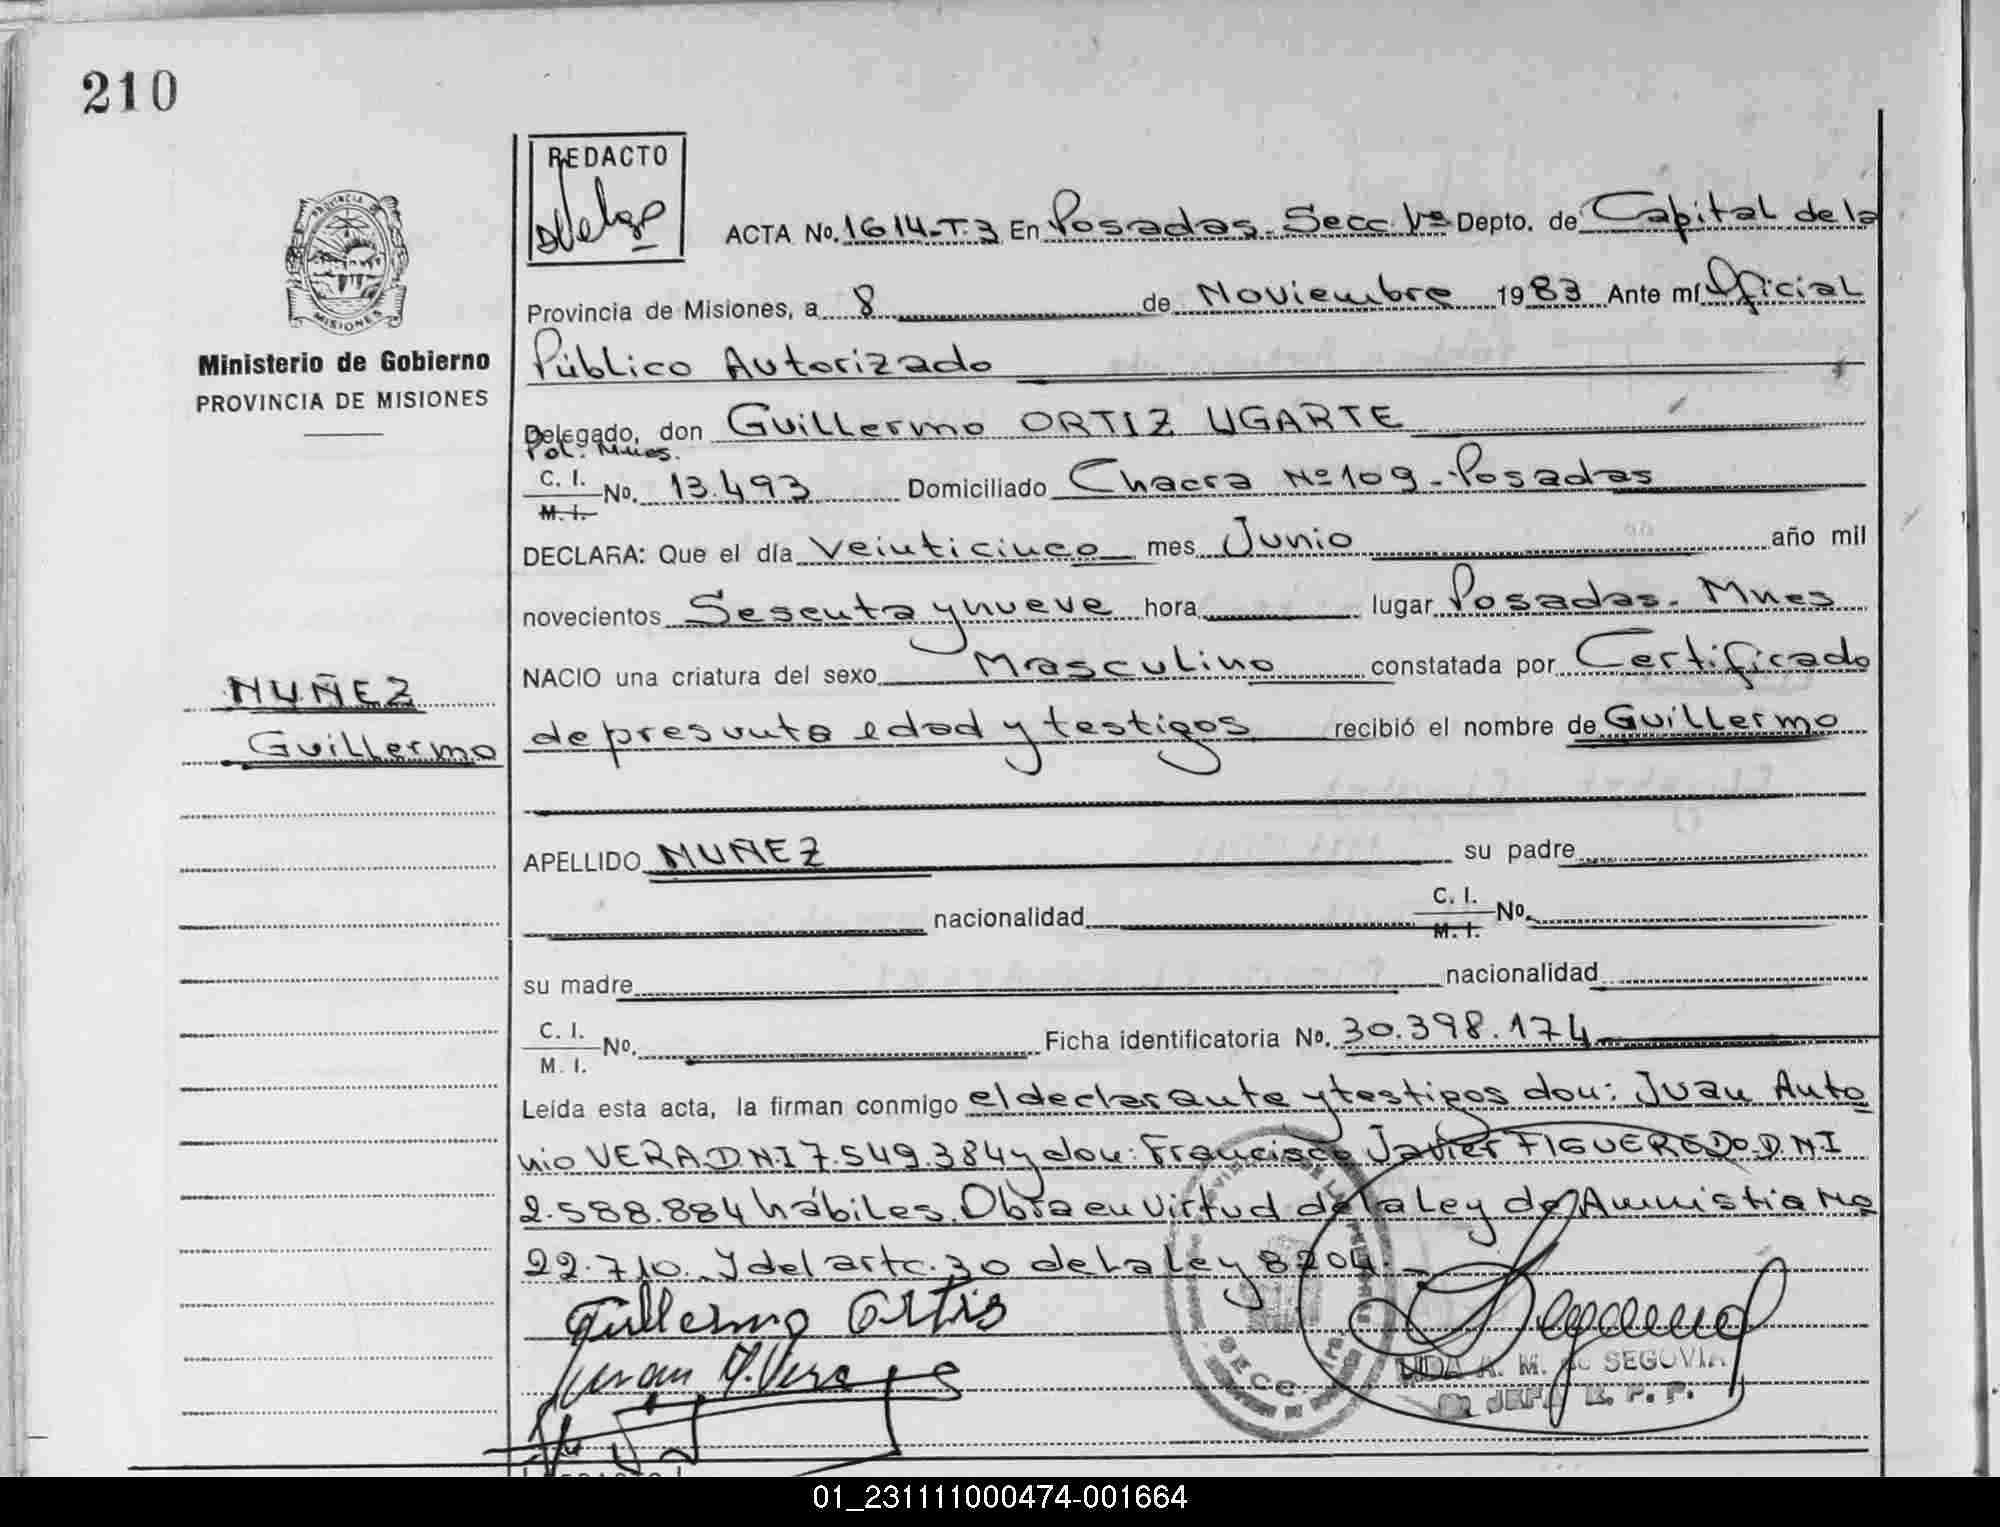 210
REDACTO
PROVINCIA DE
MISIONES
Ministerio de Gobierno
PROVINCIA DE MISIONES
ACTA No. 1614-T.3 En Posadas-Secc. 1ª Depto. de Capital de la
Provincia de Misiones, a 8 de Noviembre 1983 Ante mí Oficial
Público Autorizado
Delegado, don Guillermo ORTIZ UGARTE
Pol. Mnes.
C. I.
M. I. No. 13.493 Domiciliado Chacra Nº 109-Posadas
DECLARA: Que el día veinticinco mes Junio año mil
novecientos Sesenta y nueve hora lugar Posadas-Mnes
NACIO una criatura del sexo Masculino constatada por Certificado
de presunta edad y testigos recibió el nombre de Guillermo
NUÑEZ
Guillermo
APELLIDO NUÑEZ su padre
nacionalidad C. I.
M. I. No.
su madre nacionalidad
C. I.
M. I. No. Ficha identificatoria No. 30.398.174
Leída esta acta, la firman conmigo el declarante y testigos don: Juan Anto
nio VERA D.N.I 7.549.384 y don: Francisco Javier FIGUEREDO. D.N.I
2.588.884 hábiles. Obra en virtud de la Ley de Amnistia No
22.710. Y del artc. 30 de la Ley 8204.-
Guillermo Ortis
Juan A. Vera
SECC.
LIDA A. M. de SEGOVIA
JEFA R. P. P.
01_231111000474-001664